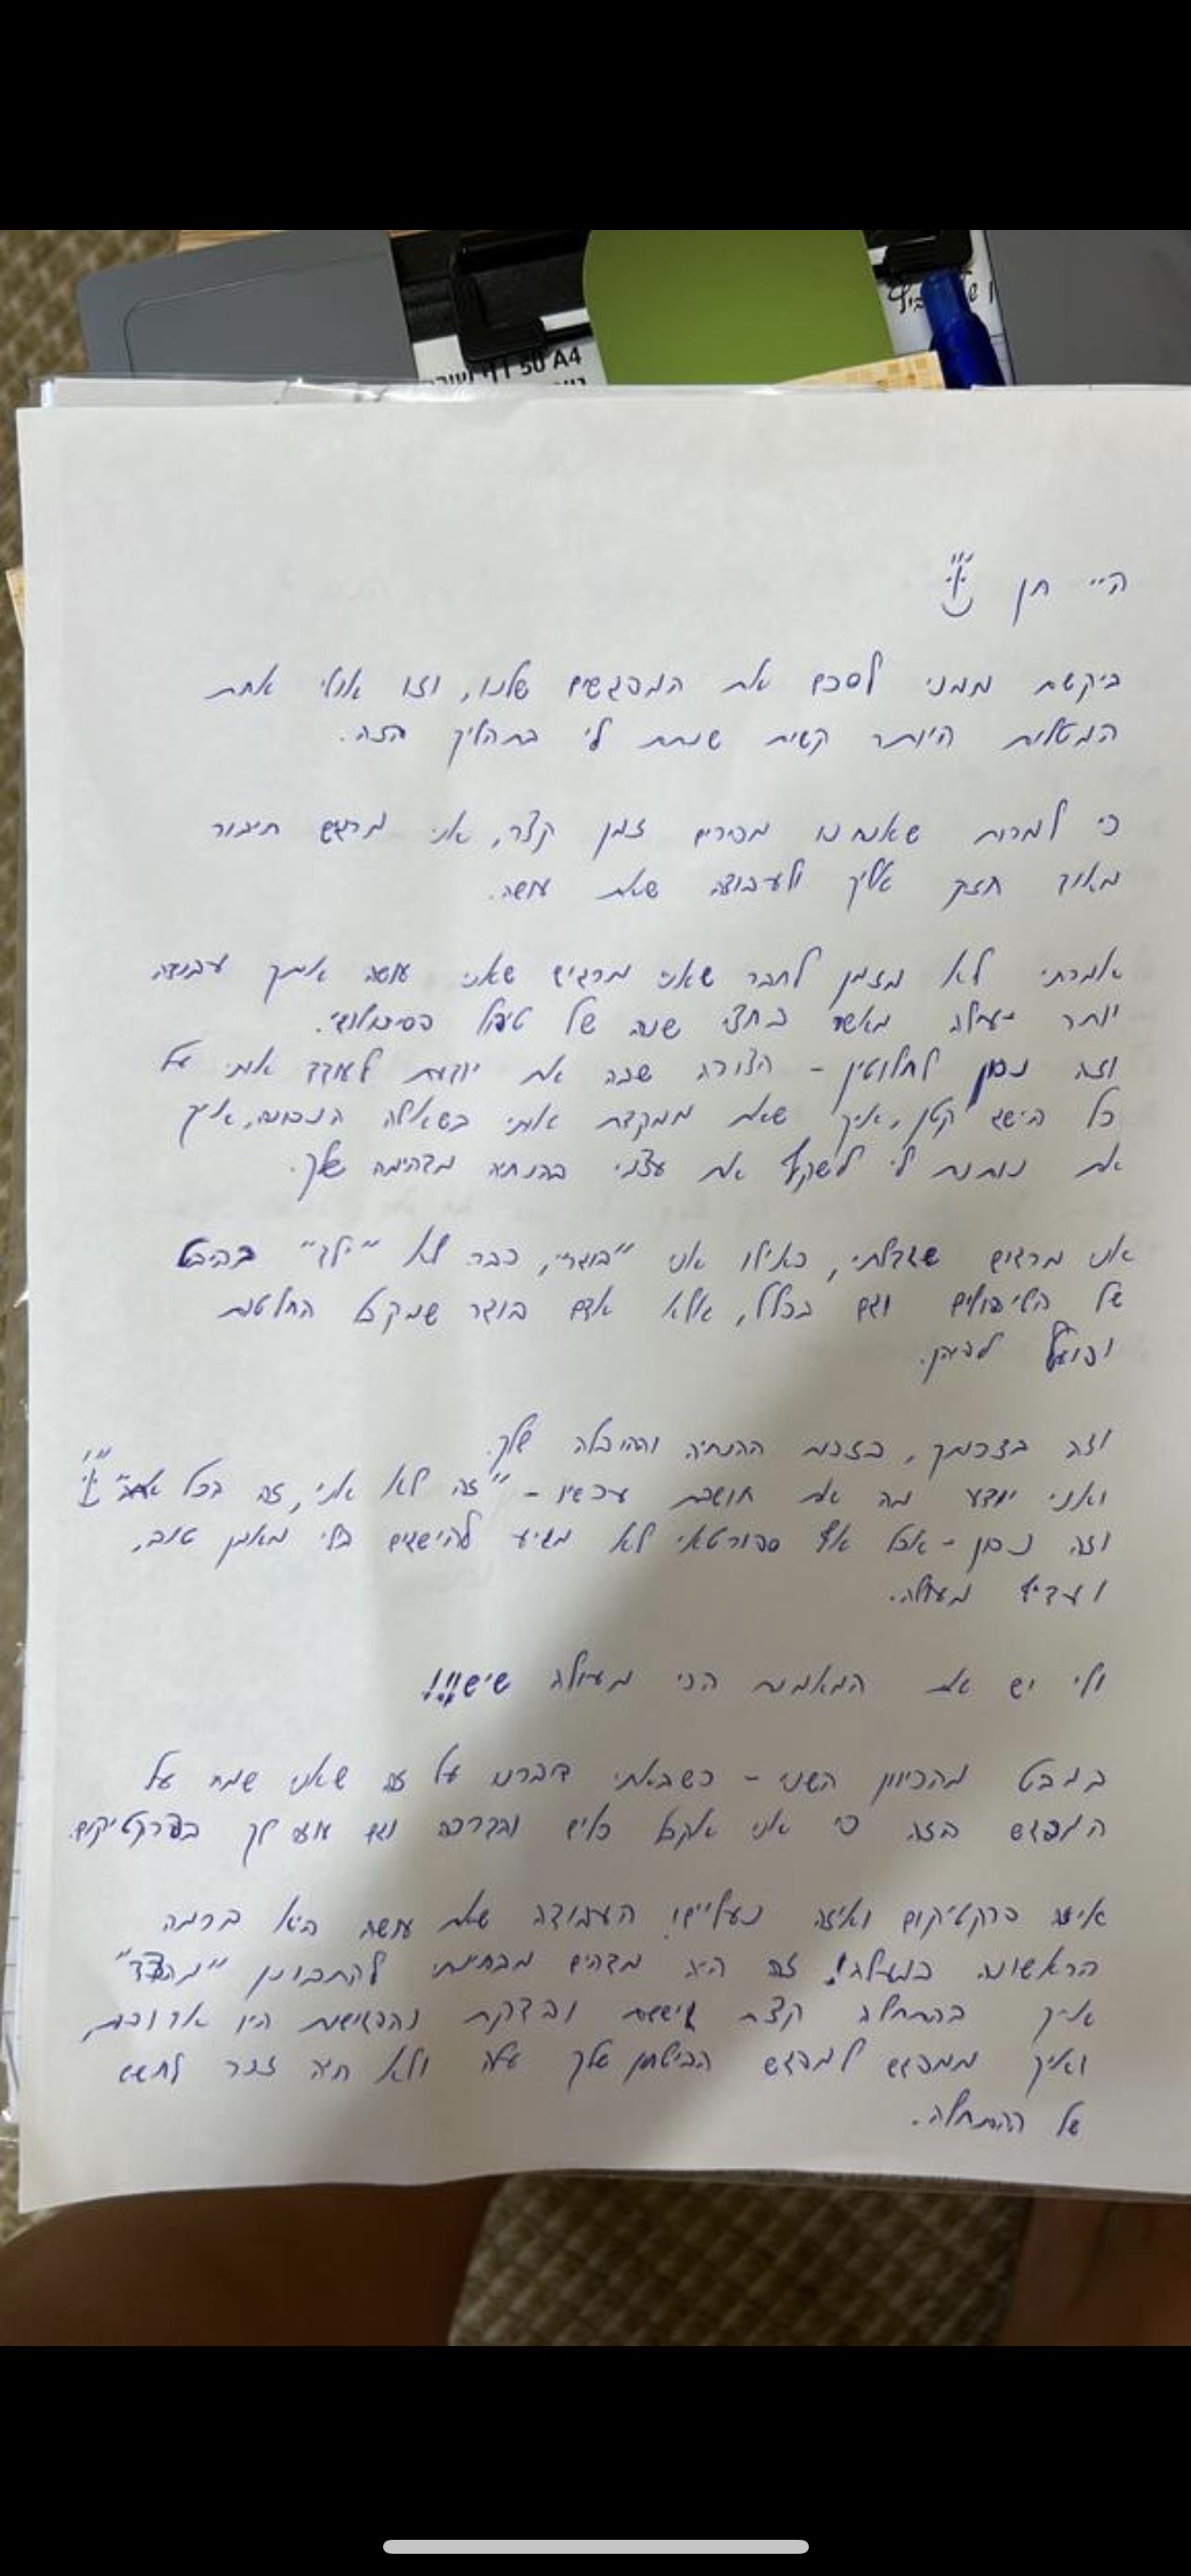 50 A4
היי חן
ביקשת ממני לסכם את המפגשים שלנו, וזו אולי אחת
המטלות היותר קשות שנתת לי בתהליך הזה.
כי למרות שאנחנו מכירים זמן קצר, אני מרגיש חיבור
מאוד חזק אליך ולעבודה שאת עושה.
אמרתי לא מזמן לחבר שאני מרגיש שאני עושה איתך עבודה
יותר יעילה מאשר בחצי שנה של טיפול פסיכולוגי.
וזה נכון לחלוטין - הצורה שבה את יודעת לעודד אותי על
כל הישג קטן, איך שאת ממקדת אותי בשאלה הנכונה, איך
את נותנת לי לשקף את עצמי בהנחיה מדהימה שלך.
אני מרגיש שגדלתי, כאילו אני "בוגר", כבר לא "ילד" בהיבט
של הטיפולים וגם בכלל, אלא אדם בוגר שמקבל החלטות
ופועל לפיהן.
וזה בזכותך, בזכות ההנחיה וההובלה שלך.
ואני יודע מה את חושבת עכשיו - "זה לא אני, זה בכל אתה"
וזה נכון - אבל אף ספורטאי לא מגיע להישגים בלי מאמן טוב,
ועדיף מעולה.
ולי יש את המאמנת הכי מעולה שיש!!!
במבט מהכיוון השני - כשבאתי דיברנו על זה שאני שמח על
המפגש הזה כי אני אקבל כלים והדרכה וגם עוזר לך בפרקטיקום.
איזה פרקטיקום ואיזה נעליים! העבודה שאת עושה היא ברמה
הראשונה במעלה! זה היה מדהים מבחינתי להתבונן "מהצד"
איך בהתחלה קצת גיששת ובדקת והפגישות היו ארוכות,
ואיך ממפגש למפגש הביטחון שלך עלה ולא היה זכר לחשש
של ההתחלה.